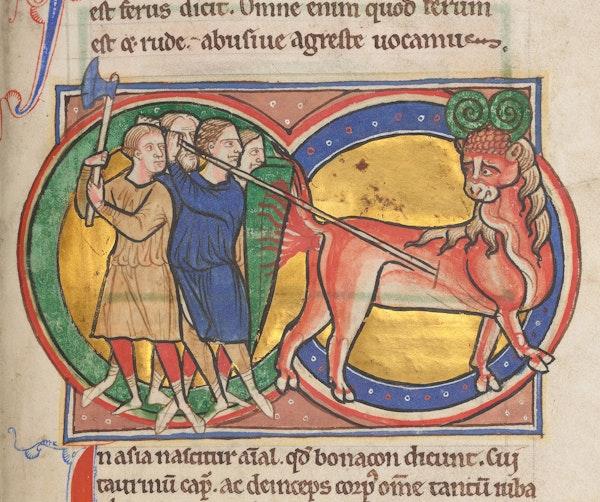 est ferus dicit. Omne enim quod ferum
est & rude. abusiue agreste uocamus.
In asia nascitur aīal. qđ bonacon dicunt. Cui
taurinū cap̄. ac deinceps corp' om̄e tantū iuba